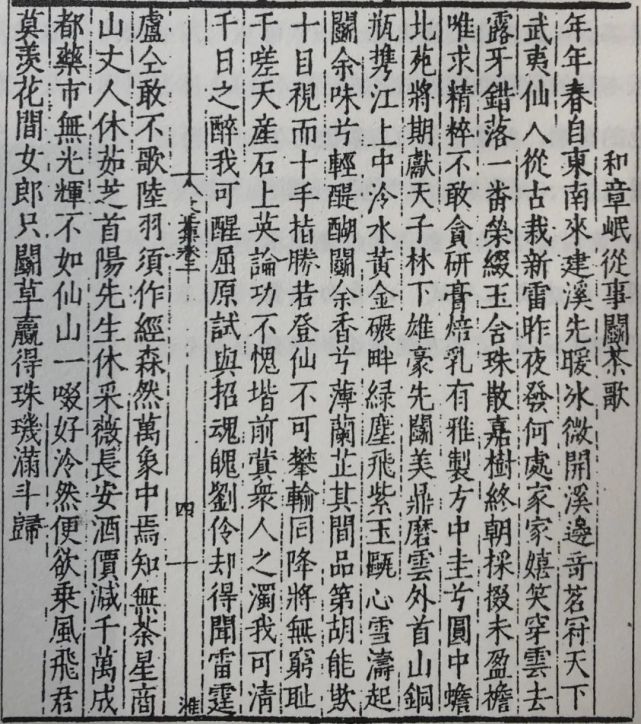 和章岷從事鬬茶歌
年年春自東南來建溪先暖冰微開溪邊奇茗冠天下
武夷仙人從古栽新雷昨夜發何處家家嬉笑穿雲去
露牙錯落一番榮綴玉含珠散嘉樹終朝採掇未盈襜
唯求精粹不敢貪研膏焙乳有雅製方中圭兮圓中蟾
北苑將期獻天子林下雄豪先鬬美鼎磨雲外首山銅
瓶攜江上中泠水黃金碾畔綠塵飛紫玉甌心雪濤起
鬬余味兮輕醍醐鬬余香兮薄蘭芷其間品第胡能欺
十目視而十手指勝若登仙不可攀輸同降將無窮恥
于嗟天産石上英論功不愧堦前蓂衆人之濁我可清
千日之醉我可醒屈原試與招魂魄劉伶却得聞雷霆
四
淮
盧仝敢不歌陸羽須作經森然萬象中焉知無茶星商
山丈人休茹芝首陽先生休采薇長安酒價減千萬成
都藥市無光輝不如仙山一啜好泠然便欲乗風飛君
莫羨花間女郎只鬬草贏得珠璣滿斗歸